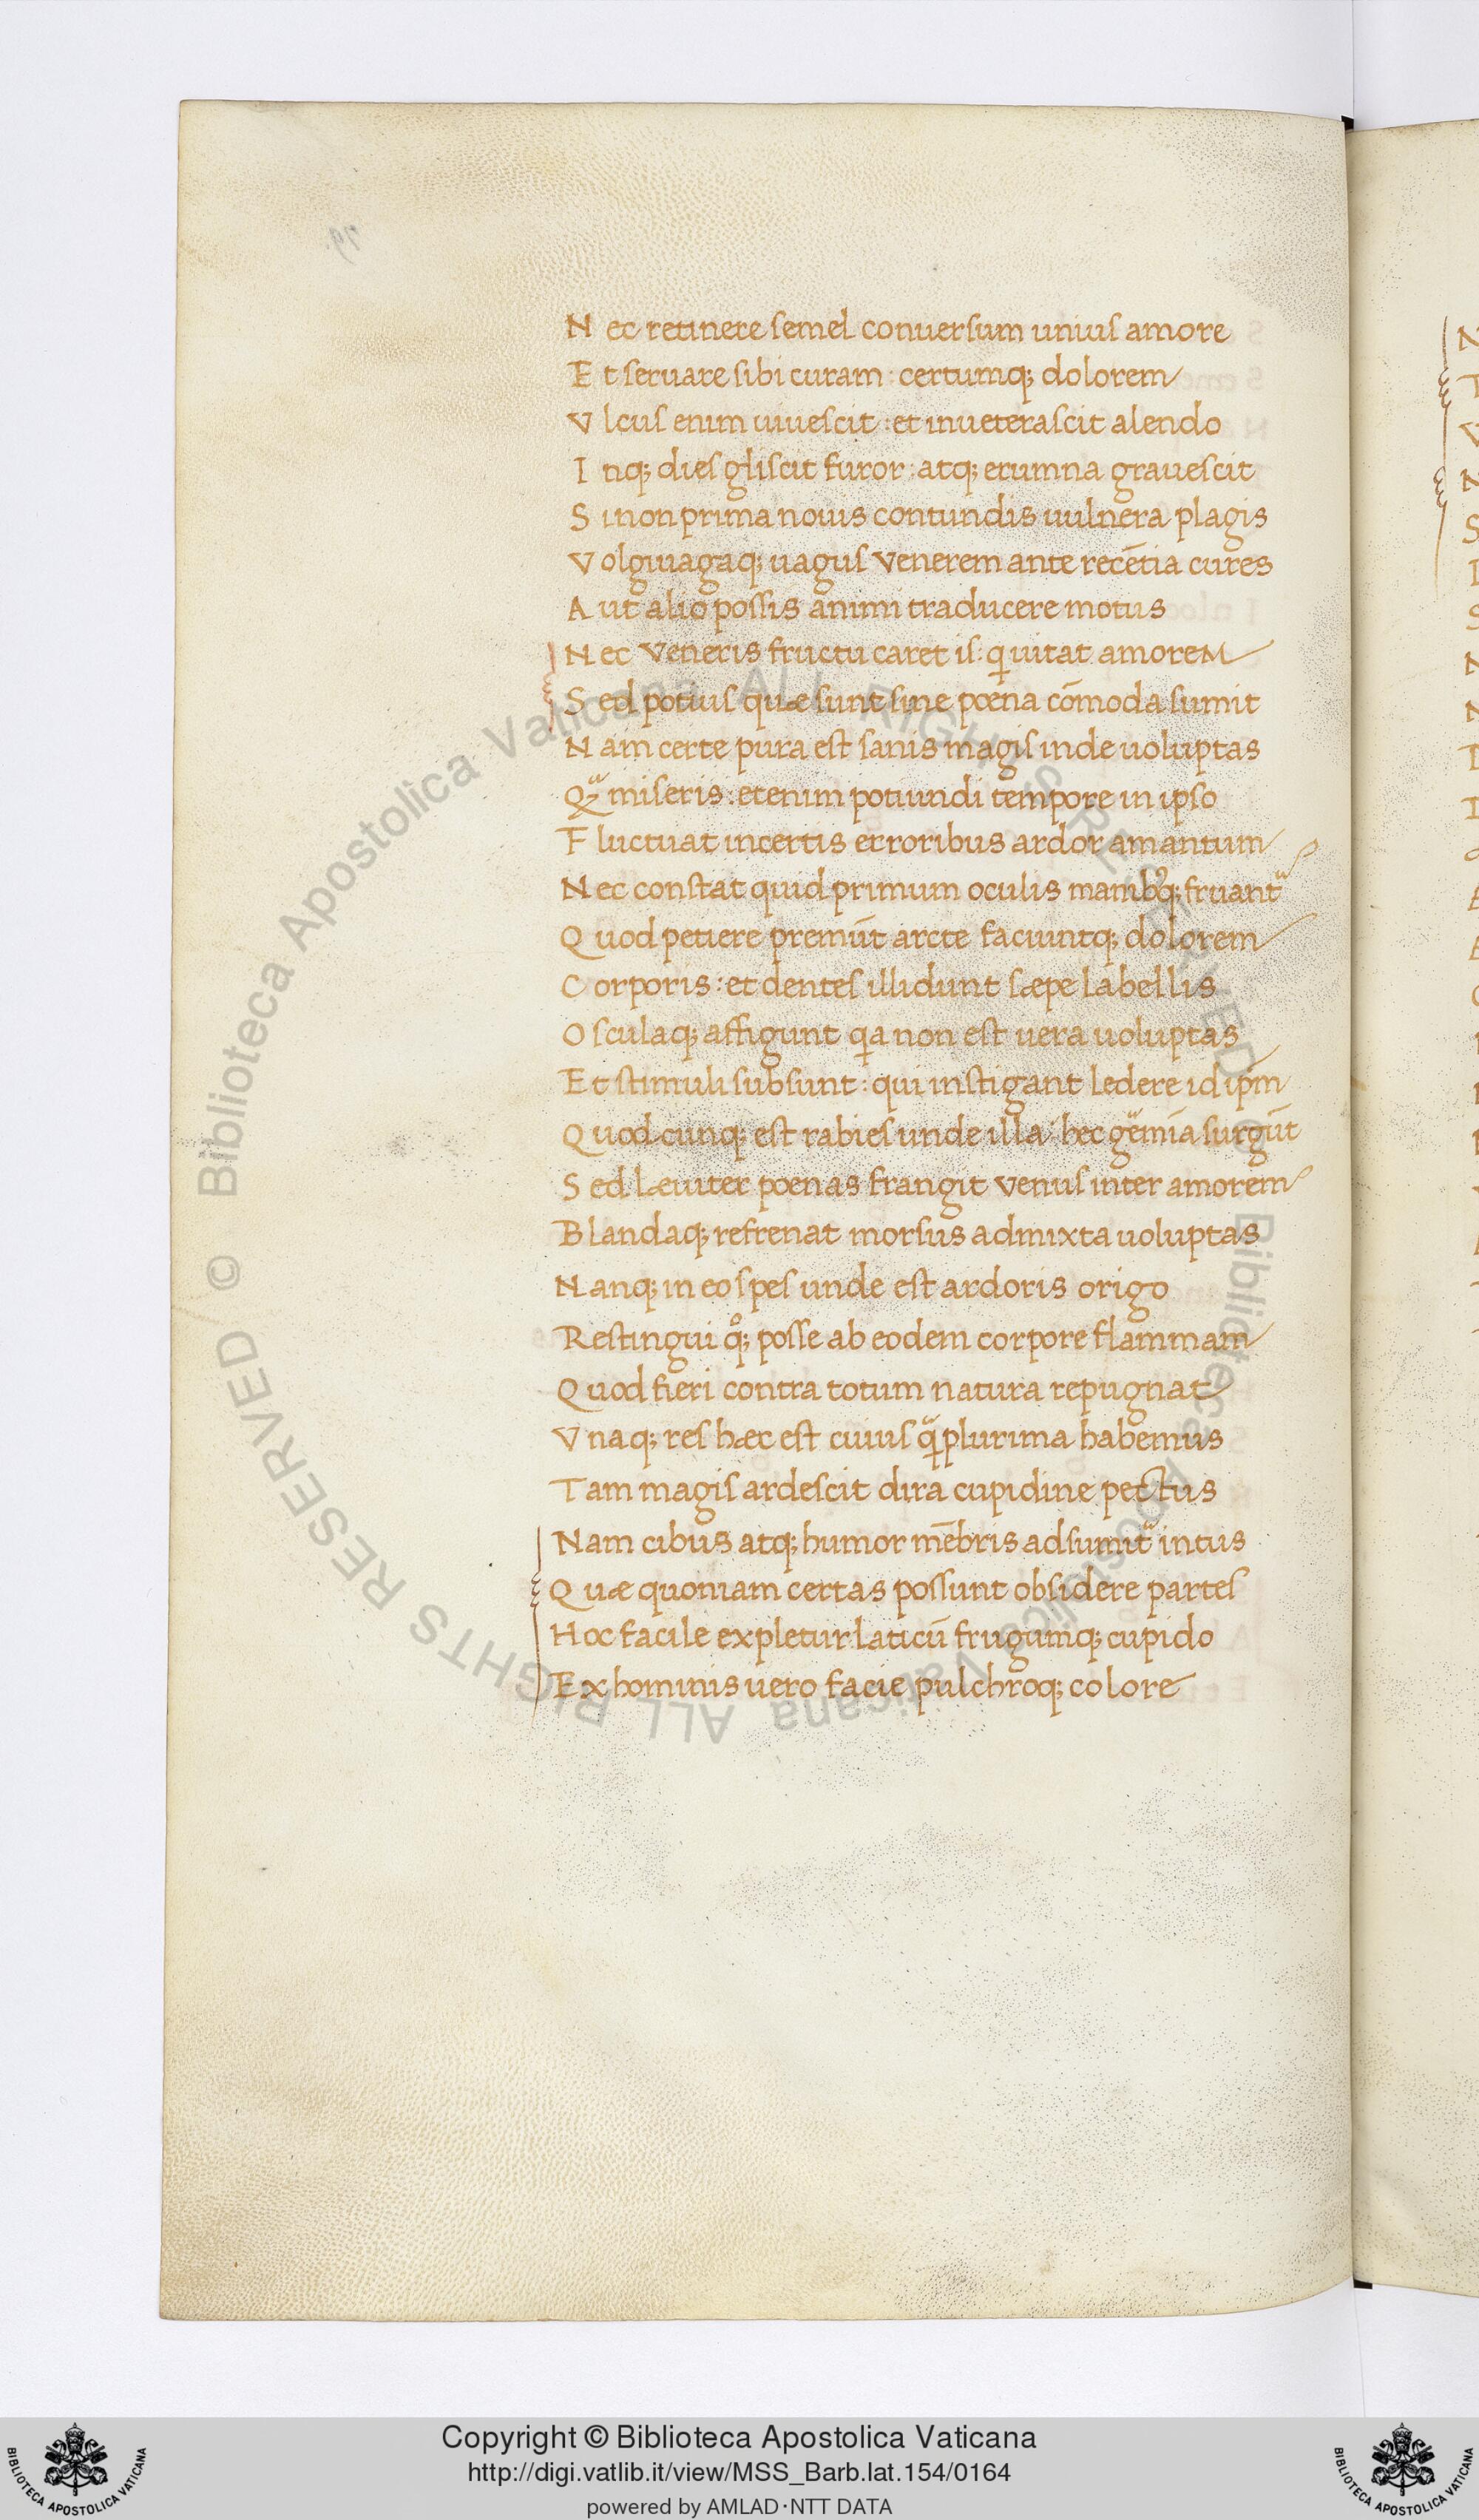 Nec retinere semel conuersum unius amore
Et seruare sibi curam : certumq; dolorem
Vlcus enim uiuescit : et inueterascit alendo
Inq; dies gliscit furor : atq; erumna grauescit
Si non prima nouis contundis uulnera plagis
Volgiuagaq; uagus Venerem ante recētia cures
Aut alio possis animi traducere motus
Nec Veneris fructu caret is : q uitat amoreM
Sed potius quæ sunt sine poena cōmoda sumit
Nam certe pura est sanis magis inde uoluptas
Qᷓ miseris : etenim potiundi tempore in ipso
Fluctuat incertis erroribus ardor amantum
Nec constat quid primum oculis manibꝰq; fruantᷣ
Quod petiere premūt arcte faciuntq; dolorem
Corporis : et dentes illidunt sæpe labellis
Osculaq; affigunt qa non est uera uoluptas
Et stimuli subsunt : qui instigant ledere id ipm̄
Quodcunq; est rabies unde illa hec gᷓemīa surgūt
Sed læuiter poenas frangit Venus inter amorem
Blandaq; refrenat morsus admixta uoluptas
Nanq; in eo spes unde est ardoris origo
Restingui qͦ; posse ab eodem corpore flammam
Quod fieri contra totum natura repugnat
Vnaq; res hæc est cuius qᷓ plurima habemus
Tam magis ardescit dira cupidine pectus
Nam cibus atq; humor mēbris adsumitᷣ intus
Quæ quoniam certas possunt obsidere partes
Hoc facile expletur laticū frugumq; cupido
Ex hominis uero facie pulchroq; colore
© Biblioteca Apostolica Vaticana ALL RIGHTS RESERVED
© Biblioteca Apostolica Vaticana ALL RIGHTS RESERVED
Copyright © Biblioteca Apostolica Vaticana
http://digi.vatlib.it/view/MSS_Barb.lat.154/0164
powered by AMLAD·NTT DATA
BIBLIOTECA APOSTOLICA VATICANA
BIBLIOTECA APOSTOLICA VATICANA